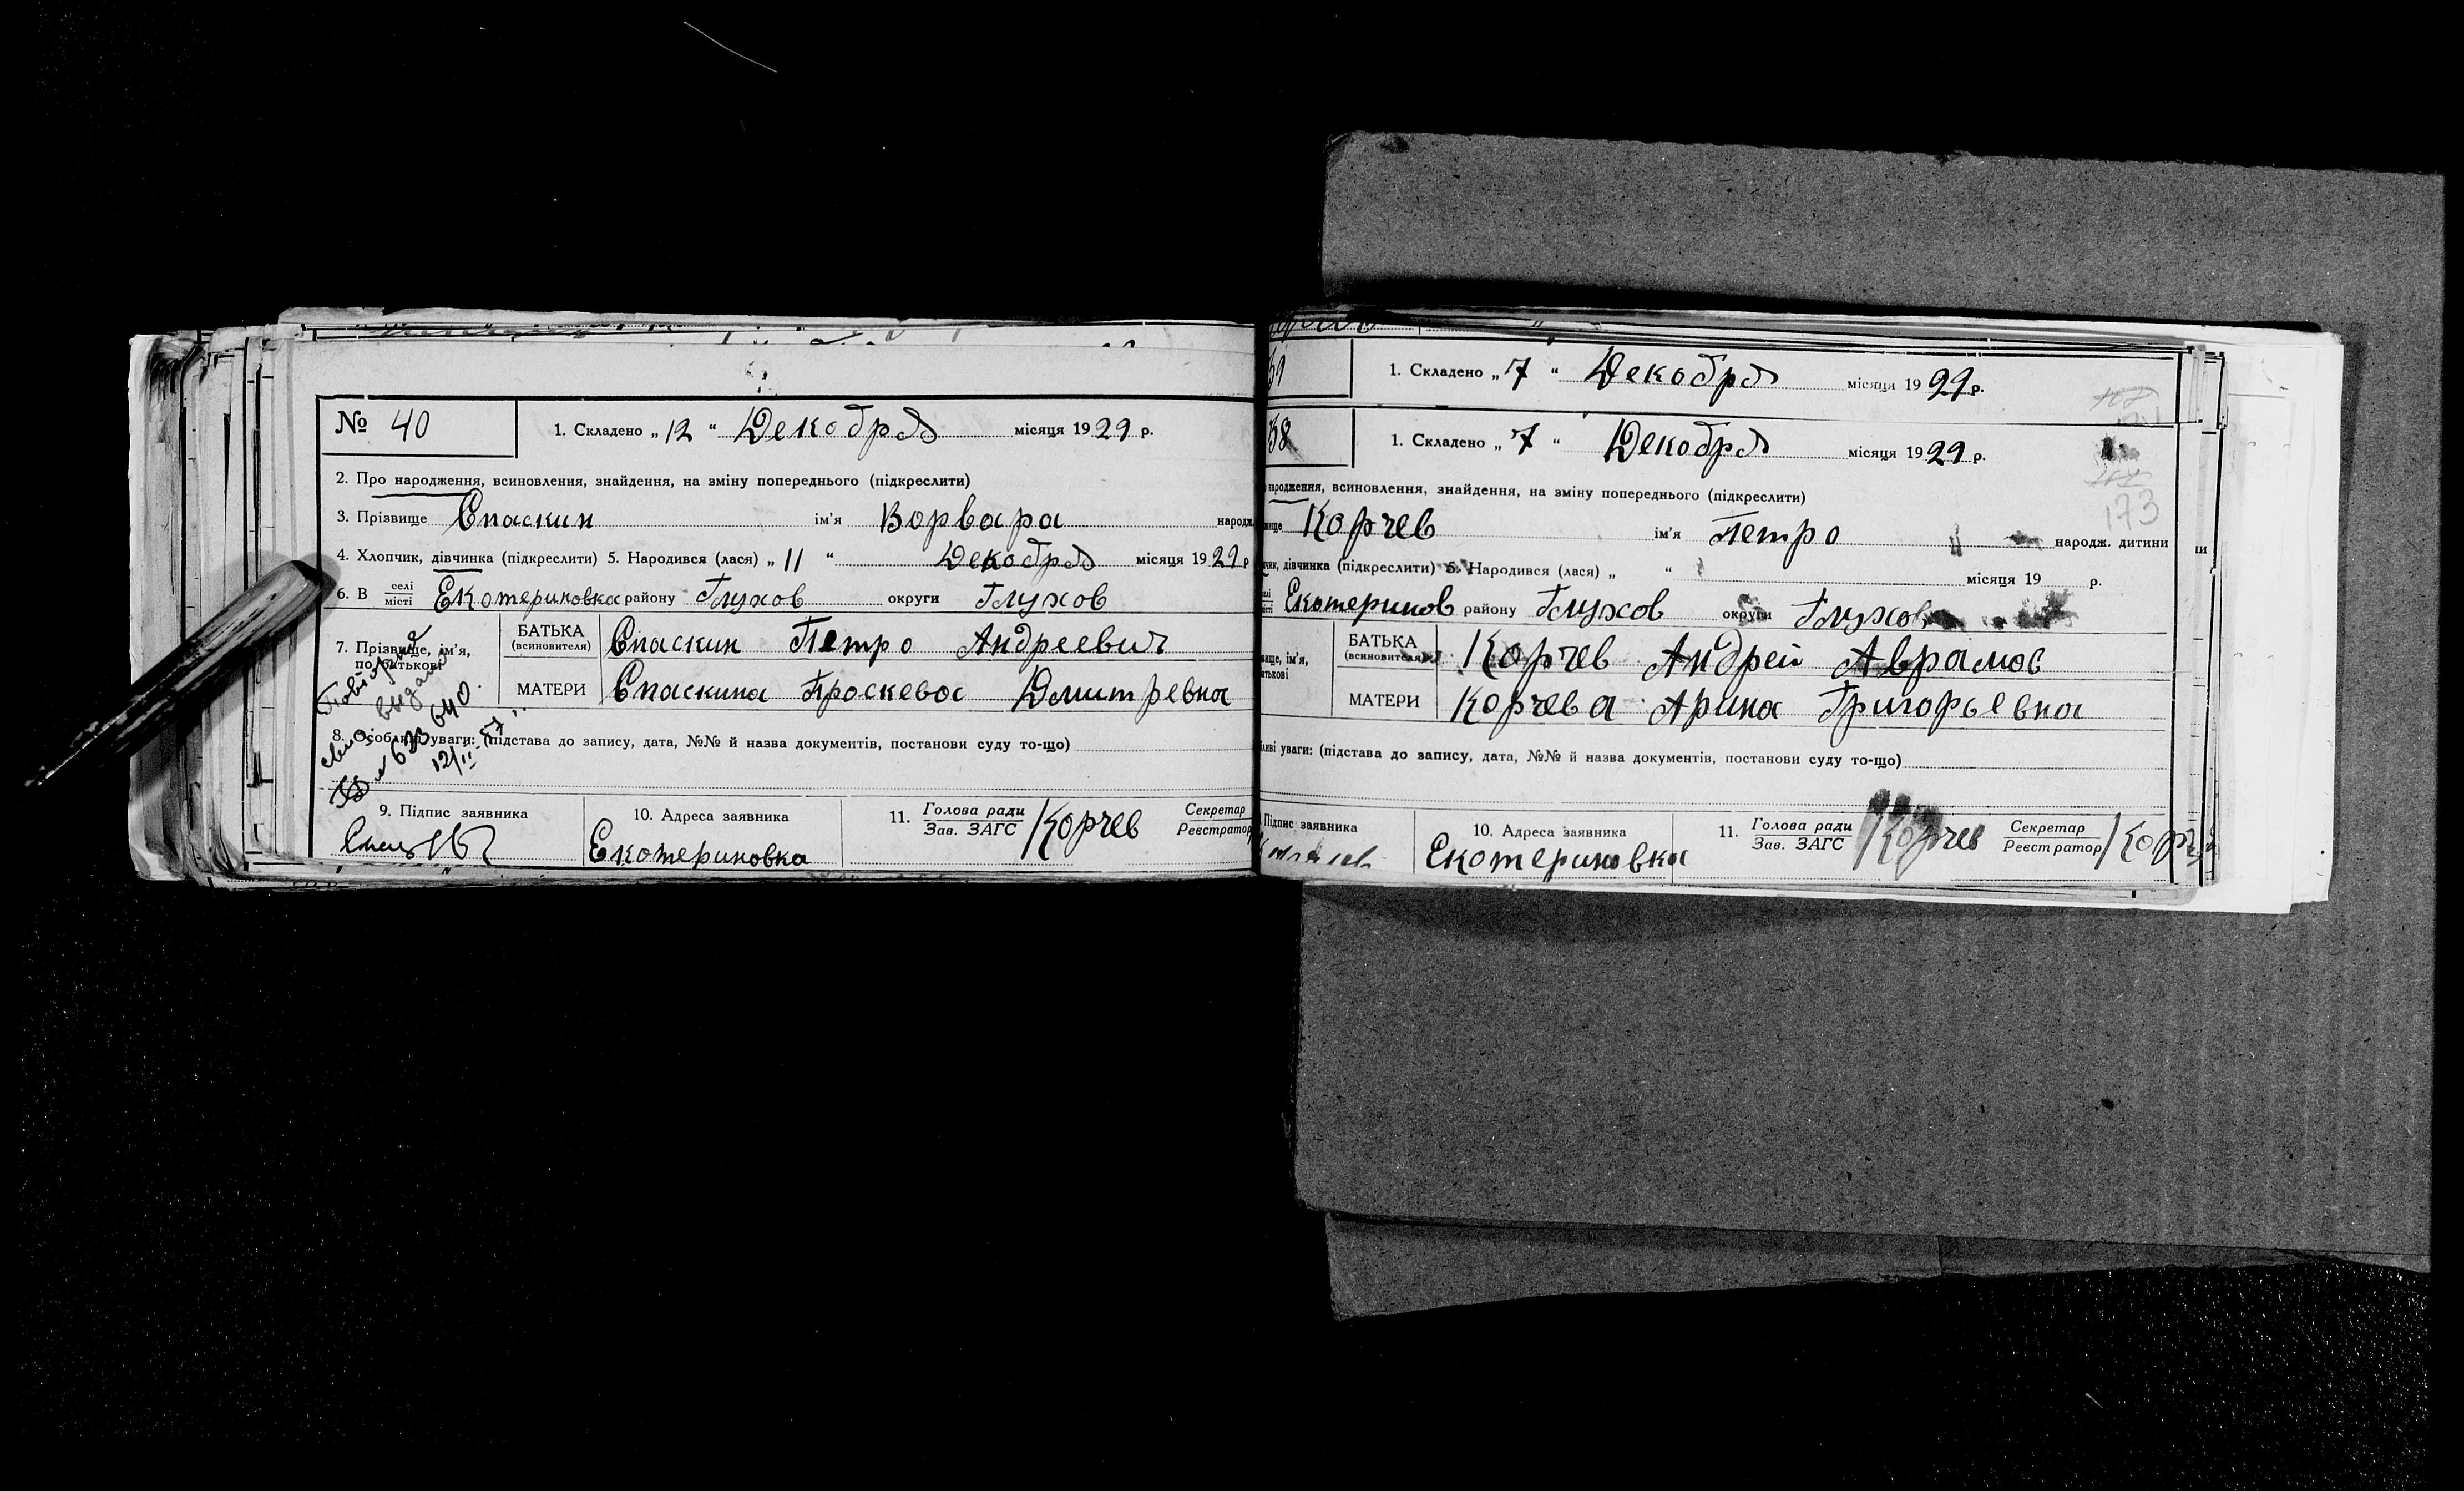 № 40
1. Складено „ 12 “ Декобря місяця 1929 р.
2. Про народження, всиновлення, знайдення, на зміну попереднього (підкреслити)
3. Прізвище Спаскин ім'я Ворвара народж.
4. Хлопчик, дівчинка (підкреслити) 5. Народився (лася) „ 11 “ Декобря місяця 1929 р
6. В селі місті Екотериновка району Глухов округи Глухов
7. Прізвище, ім'я, по батькові
БАТЬКА (всиновителя) Спаскин Петро Андреевич
МАТЕРИ Спаскина Проскевос Дмитревна
8. Особливі уваги: (підстава до запису, дата, №№ й назва документів, постанови суду то-що)
633640
12/II 57
9. Підпис заявника
10. Адреса заявника Екотериновка
11. Голова ради Зав. ЗАГС Корчев Секретар Реєстратор
39
1. Складено „ 7 “ Декобря місяця 1929 р.
38
1. Складено „ 7 “ Декобря місяця 1929 р.
173
народження, всиновлення, знайдення, на зміну попереднього (підкреслити)
Корчев ім'я Петро народж. дитини
дівчинка (підкреслити) 5. Народився (лася) „ “ місяця 19 р.
Екотеринов району Глухов округи Глухов
БАТЬКА (всиновителя) Корчев Андрей Аврамов
МАТЕРИ Корчева Арина Григорьевна
уваги: (підстава до запису, дата, №№ й назва документів, постанови суду то-що)
Підпис заявника
10. Адреса заявника Екотериновка
11. Голова ради Зав. ЗАГС Корчев Секретар Реєстратор Корч